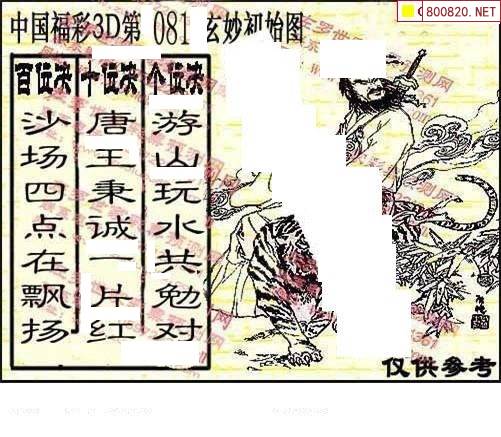 800820.NET
中国福彩3D第 081 玄妙初始图
百位决 十位决 个位决
沙场四点在飘扬
唐王秉诚一片红
游山玩水共勉对
仅供参考